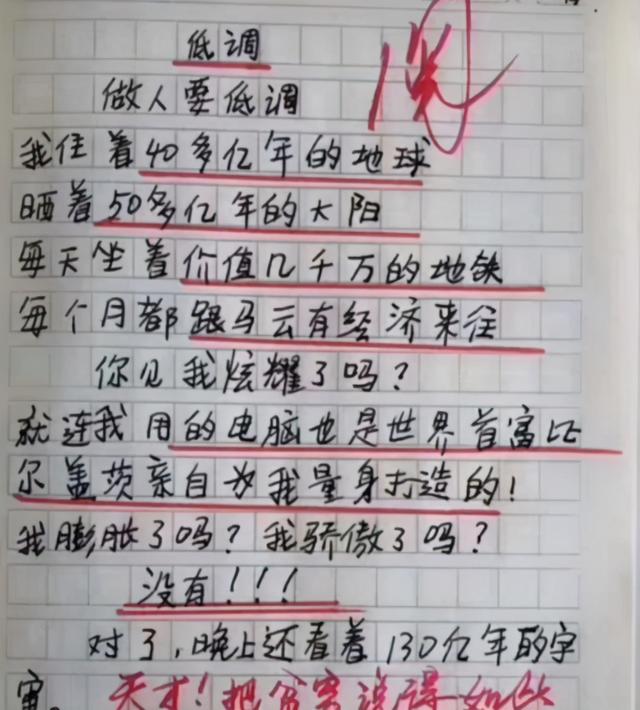 阅
低调
做人要低调
我住着40多亿年的地球
晒着50多亿年的大阳
每天坐着价值几千万的地铁
每个月都跟马云有经济来往
你见我炫耀了吗？
就连我用的电脑也是世界首富比
尔盖茨亲自为我量身打造的！
我膨胀了吗？我骄傲了吗？
没有！！！
对了，晚上还看着130亿年的宇
宙。天才！把贫穷说得如此